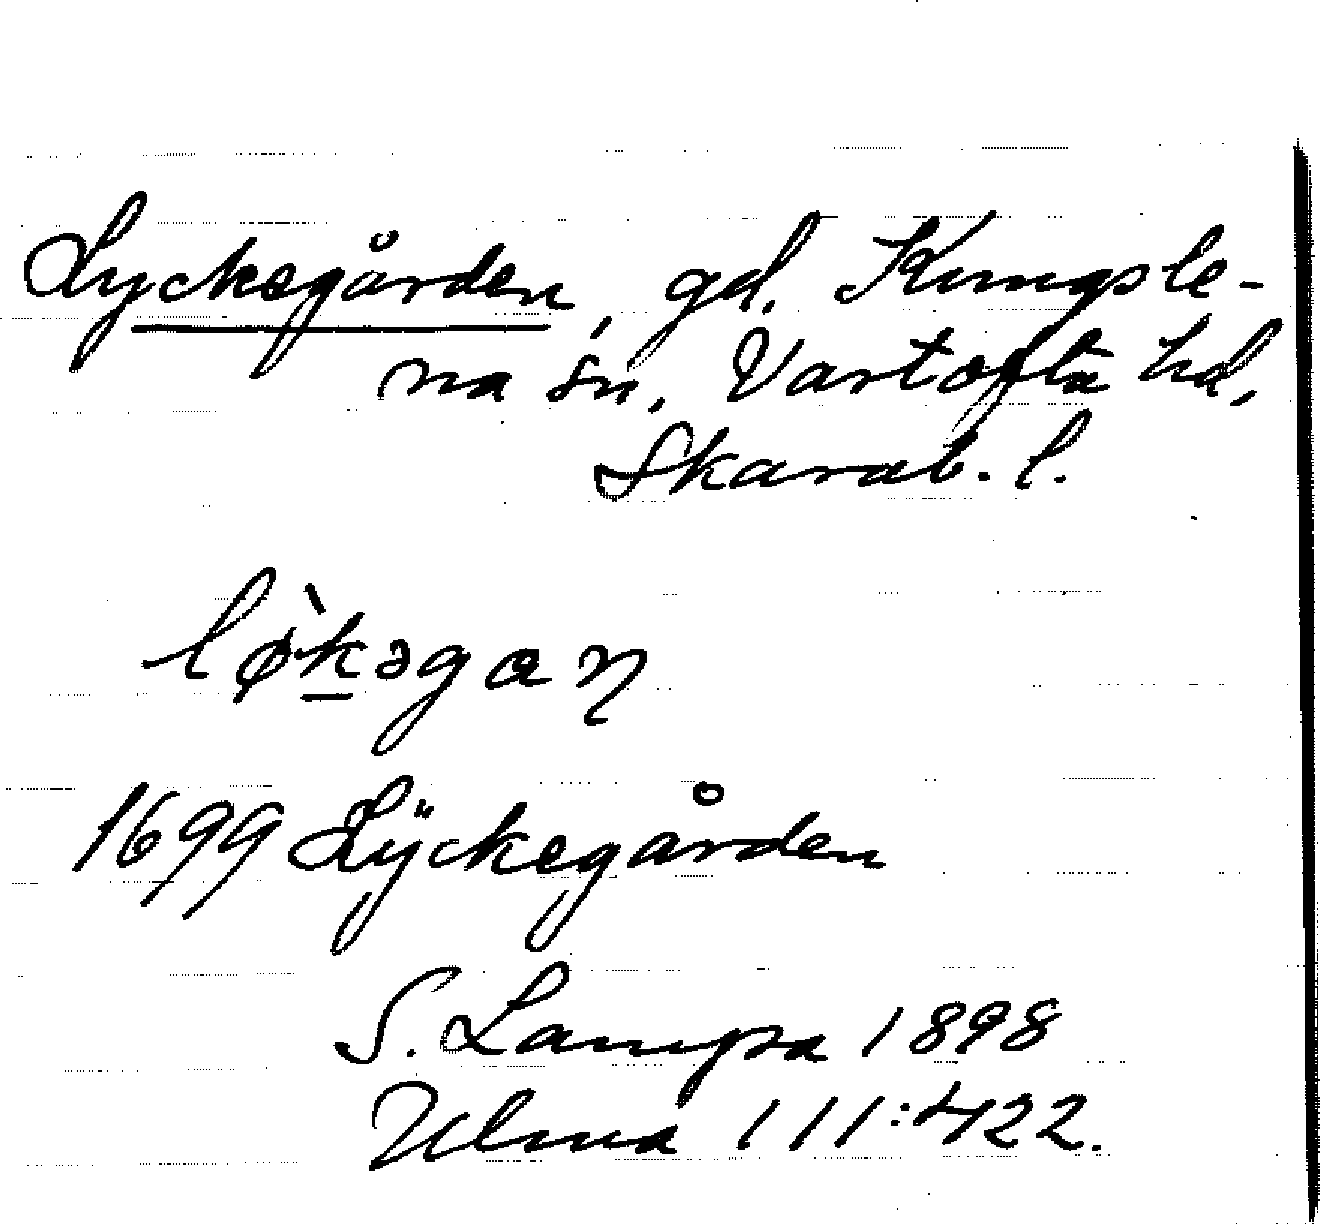 Lyckegården, gd. Kungsle-
na sn, Vartofta hd,
Skarab. l.
lø̀kəgaɳ
1699 Lÿckegården
S. Lampa 1898
Ulma 111:422.